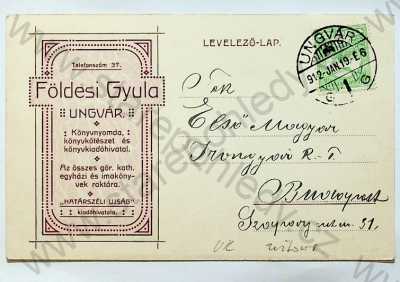 Telefonszám 37.
Földesi Gyula
UNGVÁR.
Könyvnyomda,
könyvkötészet és
könyvkiadóhivatal.
Az összes gör. kath.
egyházi és imaköny-
vek raktára.
„HATÁRSZÉLI UJSÁG"
kiadóhivatala.
LEVELEZŐ-LAP.
UNGVÁR
912 JAN. 19
Első Magyar
Irongyár R-T.
Budapest
utca 31.